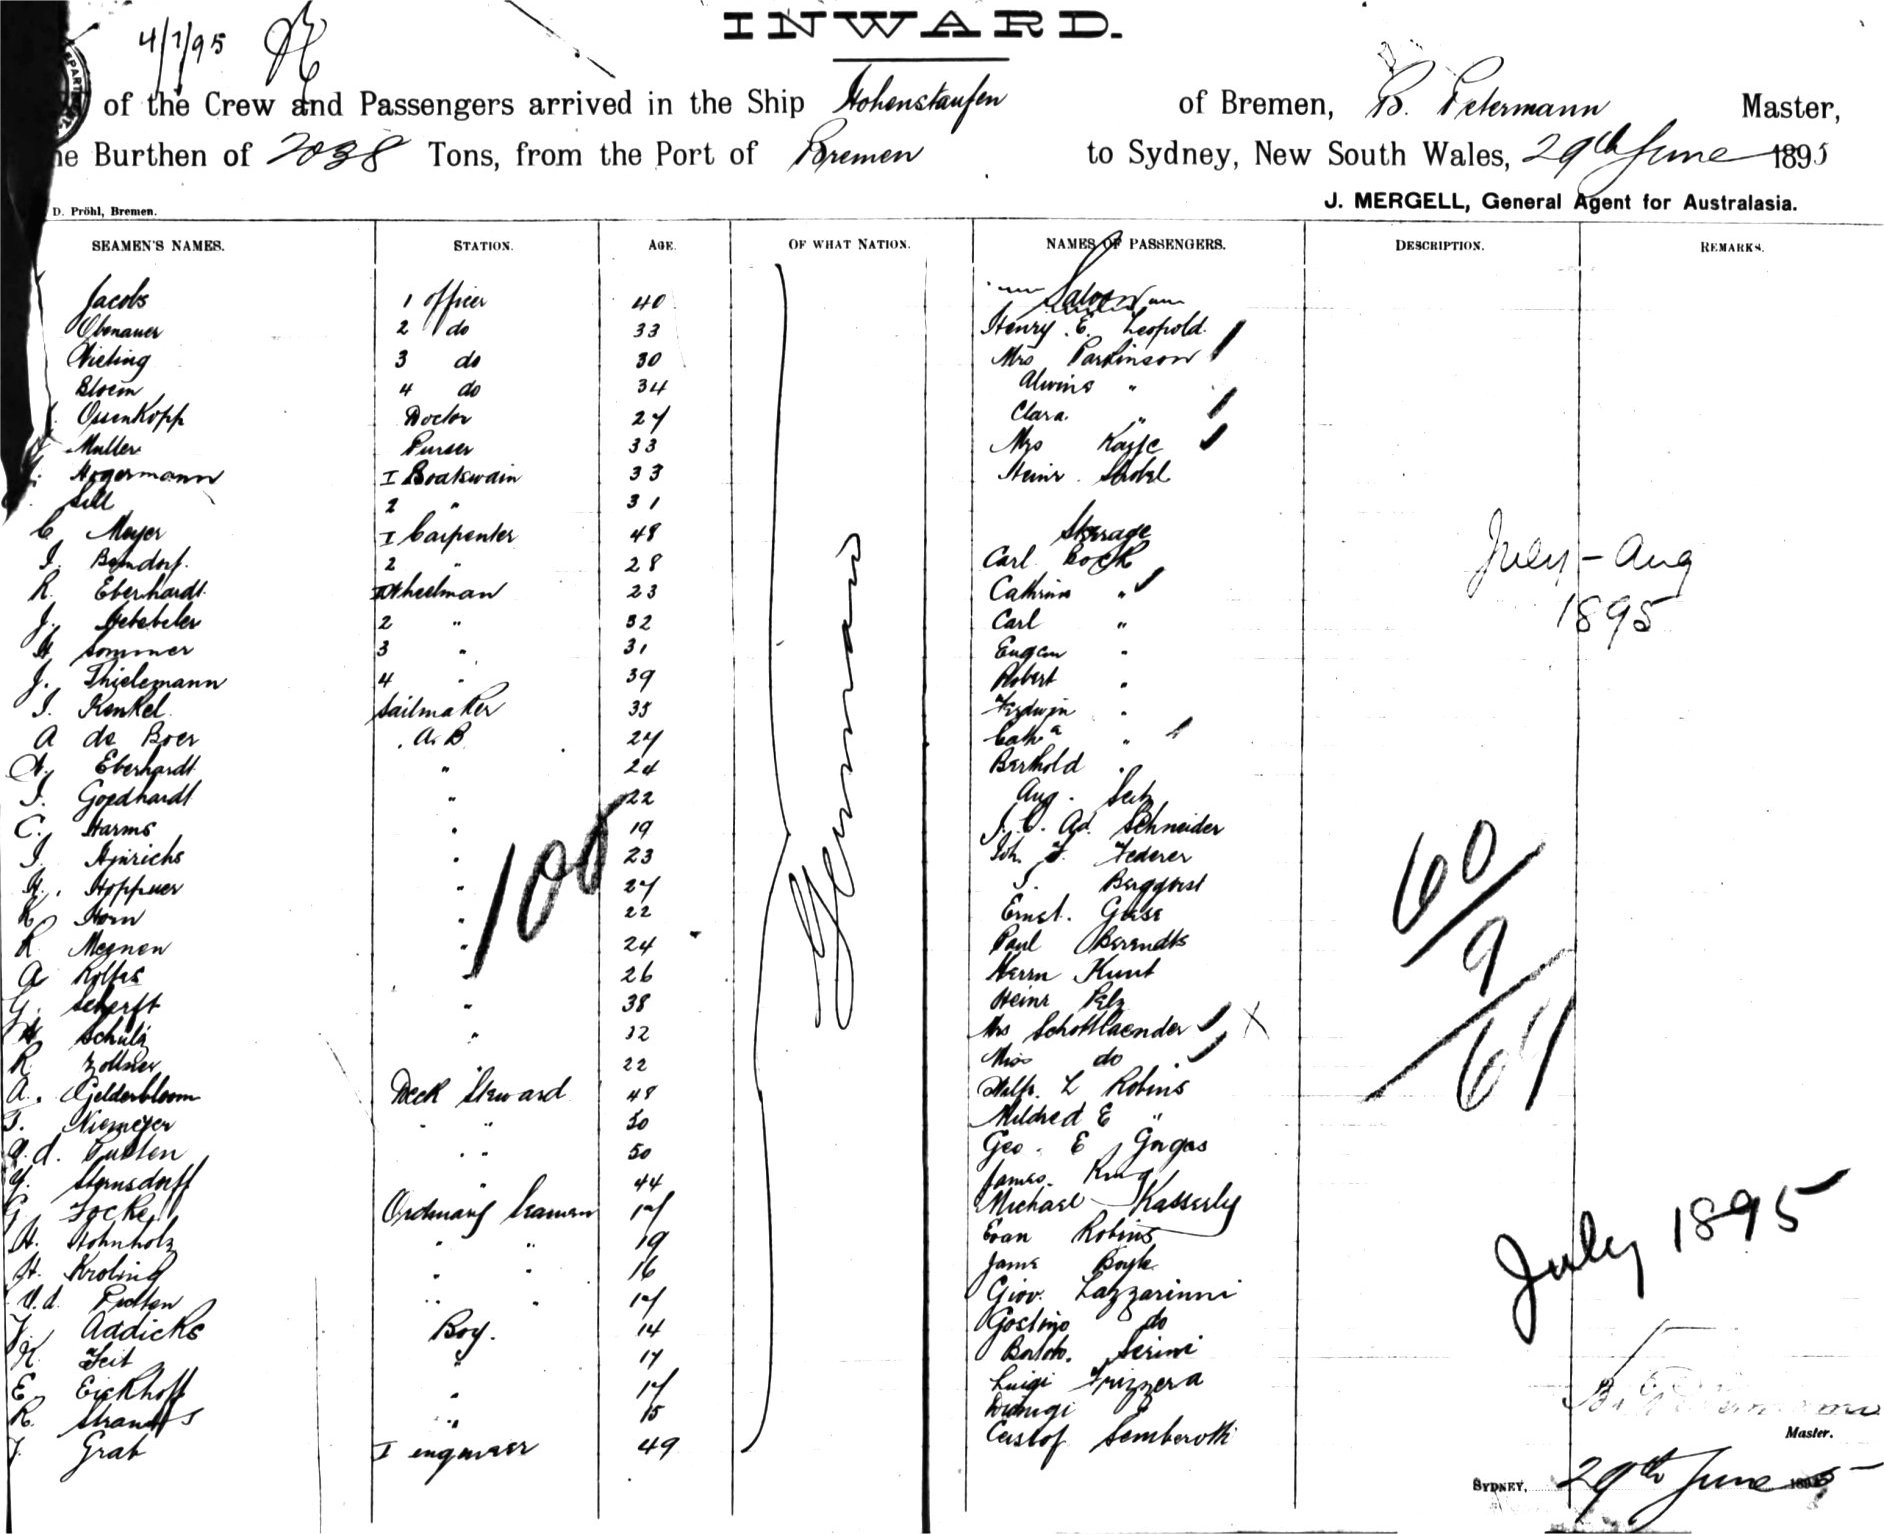 INWARD.
4/7/95
of the Crew and Passengers arrived in the Ship Hohenstaufen of Bremen, B. Petermann Master,
he Burthen of 2038 Tons, from the Port of Bremen to Sydney, New South Wales, 29th June 1895
D. Pröhl, Bremen. J. MERGELL, General Agent for Australasia.
SEAMEN'S NAMES. STATION. AGE. OF WHAT NATION. NAMES OF PASSENGERS. DESCRIPTION. REMARKS.
Jacobs 1 officer 40 Saloon
Obenauer 2 do 33 Henry E. Leopold
Vieting 3 do 30 Mrs Parkinson
Bloem 4 do 34 Alwine "
Ossenkopp Doctor 27 Clara "
Muller Purser 33 Mrs
Hogermann I Boatswain 33 Heinr. Strobel
Sell 2 " 31
C Meyer I Carpenter 48 Steerage
J. Bondorf 2 " 28 Carl Bock
R. Eberhardt I Wheelman 23 Cathrine "
J. 2 " 32 Carl "
H Sommer 3 " 31 Eugen "
J. Thielemann 4 " 39 Robert "
J. Kenkel Sailmaker 35 "
A de Boer A. B 27 Cath a "
A. Eberhardt " 24 Berthold "
J. Goedhardt " 22 Aug. Seitz
C. Harms " 19 J. C. Ad. Schneider
J. Hinrichs " 23 Joh. F. Federer
H. Hoppner " 27 J. Bergqvist
K. Horn " 22 Ernst. Giese
R. Meenen " 24 Paul Berendts
A Rolfes " 26 Herrn Kunt
G. Scherft " 38 Heinr Pelz
H. Schulz " 32 Mrs Schottlaender X
R. Zollner " 22 Miss do
A. Gelderbloom Deck Steward 48 L Robins
F. Niemeyer " " 50 Mildred E "
v. d. Putten " " 50 Geo. E
G. Sternsdorff " 44 James King
G Focke Ordinary Seaman 17 Michael Kasserly
H. Hohnholz " " 19 Evan Robins
H. Kroling " " 16 James Boyle
v. d. Putten " " 17 Giov. Lazzarinni
J. Addicks Boy. 14 Gostino do
K. Feit " 17 Bortolo. Serini
E. Eickhoff " 17 Luigi Frizzera
R. " 15
J. Grab I engineer 49 Cristof Semberotti
Germans
100
July - Aug
1895
60
9
July 1895
Master.
SYDNEY, 29th June 1895